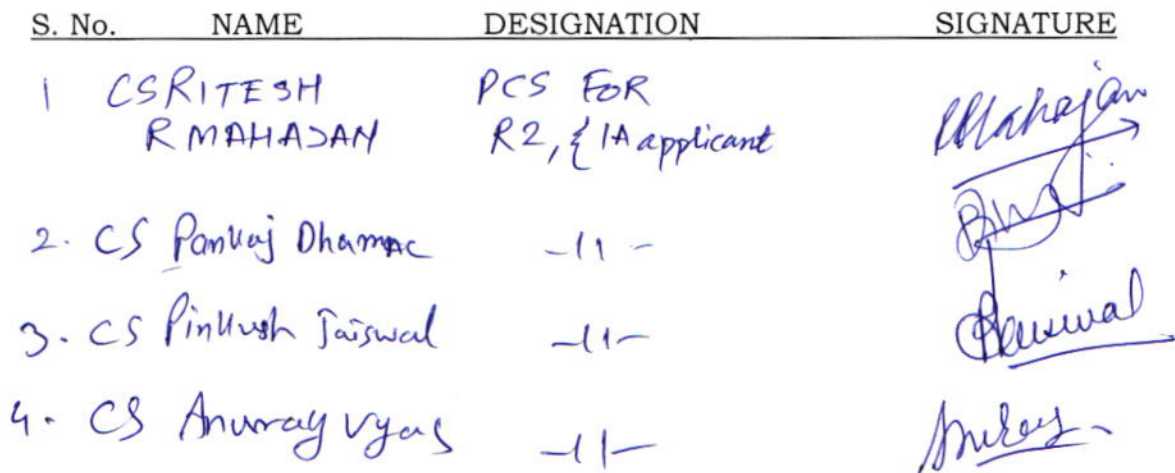 S. No. NAME DESIGNATION SIGNATURE
1 CS RITESH PCS FOR
R MAHAJAN R2, { IA applicant
RMahajan
2. CS Pankaj Dhamac -11-
3. CS Pinkush Jaiswal -11-
PJaiswal
4. CS Anurag Vyas -11-
Anurag